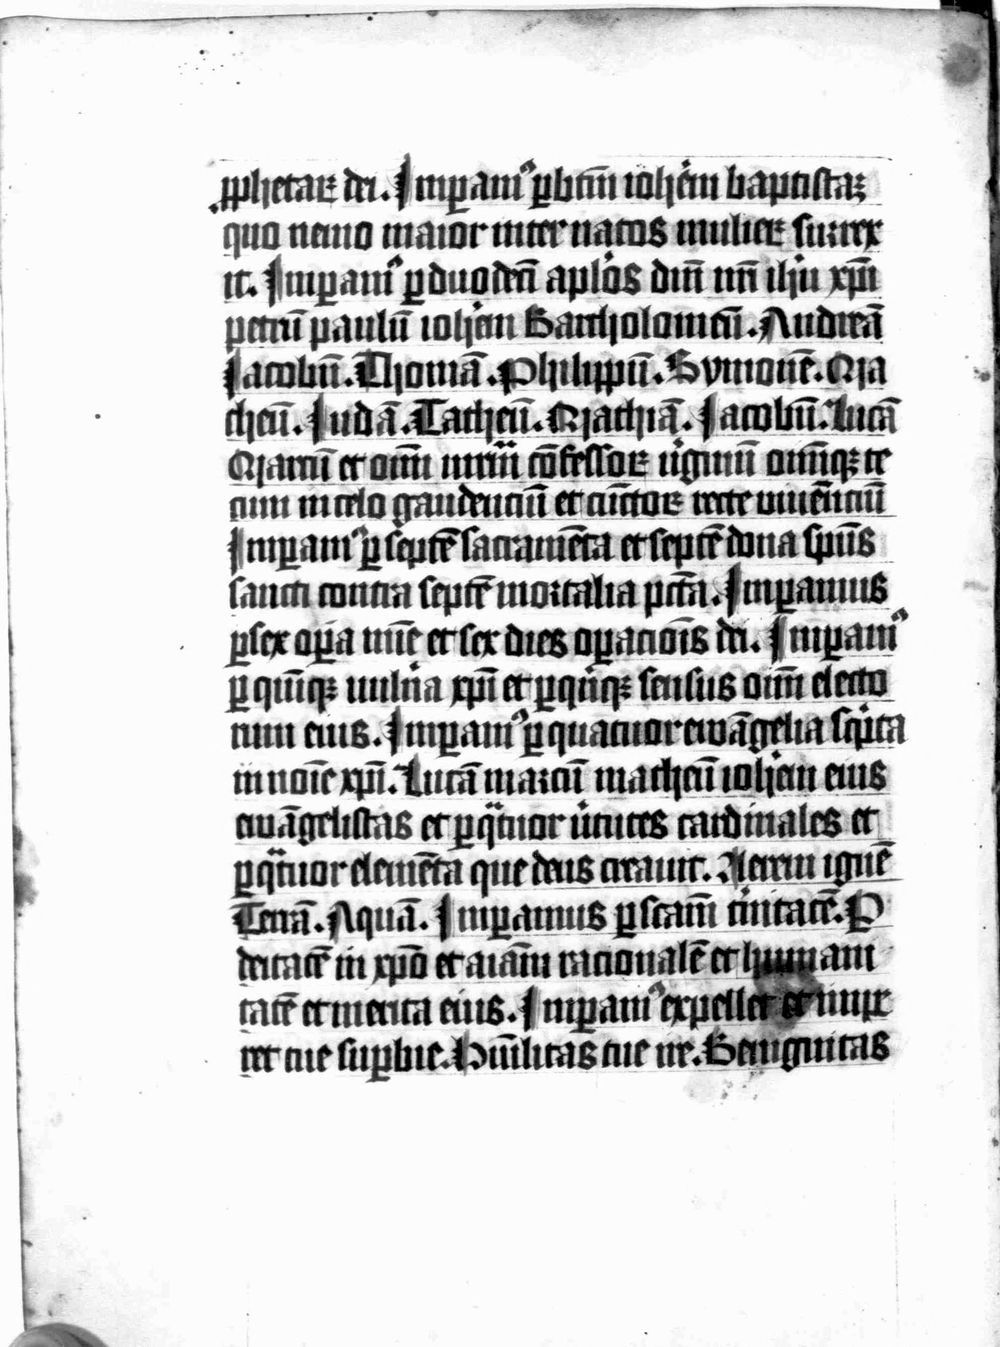 ꝓphetaꝝ dei. Imꝑamꝰ ꝑ btm̄ ioh̄em baptistaꝫ
quo nemo maior inter natos mulieꝝ surrex
it. Imꝑamꝰ ꝑ duodecī apl̓os dn̄i nr̄i ih̄u xp̄i
petrū paulū ioh̄em Bartholomeū. Andreā
Iacobū. Thomā. Philippū. Symonē. Ma
theū. Iudā. Tatheū. Mathiā. Iacobū. Lucā
Marcū et om̄i mr̄m cōfessoꝝ v̓ginū om̄iqꝫ te
cum in celo gaudenciū et cūctoꝝ recte viuēnciū
Imꝑamꝰ ꝑ septē sacramēta et septē dona sp̄us
sancti contra septē mortalia pct̄a. Imꝑamus
ꝑ sex oꝑa mīe et sex dies oꝑacionīs dei. Imꝑamꝰ
ꝑ quīqꝫ vuln̓a xp̄i et ꝑ qūiqꝫ sensus oīm electo
rum eius. Imꝑamꝰ ꝑ quatuor ewāgelia sc̓pta
in noīe xp̄i. Lucā marcū matheū ioh̄em eius
ewāgelistas et ꝑ qͣtuor v̓tutes cardinales et
ꝑ qͣtuor elemēta que deus creauit. Aerem ignē
Terrā. Aquā. Imꝑamus ꝑ sc̄am t̓nitatē. P
deitatē in xp̄o et aīam racionalē et humani
tatē et merita eius. Imꝑamꝰ expellet et impe
ret tue suꝑbie. Hūilitas tue ire. Benignitas